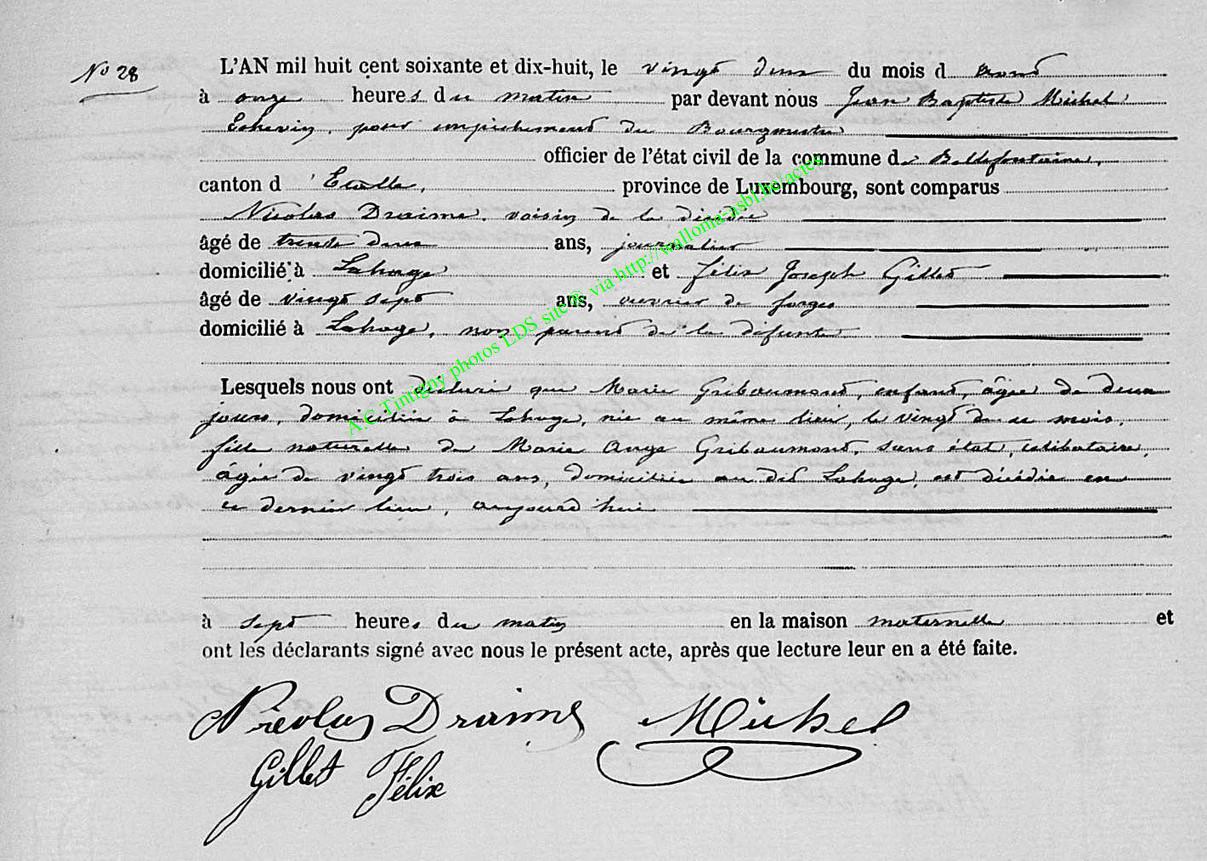 No 28
L'AN mil huit cent soixante et dix-huit, le vingt deux du mois d'août
à onze heures du matin par devant nous Jean Baptiste Michel
Echevin, pour empêchement du Bourgmestre
officier de l'état civil de la commune de Bellefontaine,
canton d'Etalle, province de Luxembourg, sont comparus
Nicolas Draime, voisin de la décédée
âgé de trente deux ans, journalier
domicilié à Lahage et Félix Joseph Gillet
âgé de vingt sept ans, ouvrier de forges
domicilié à Lahage, non parent de la défunte
Lesquels nous ont déclaré que Marie Gribaumont, enfant, âgée de deux
jours, domiciliée à Lahage, née au même lieu, le vingt de ce mois,
fille naturelle de Marie Ange Gribaumont, sans état, célibataire,
âgée de vingt trois ans, domiciliée au dit Lahage, est décédée en
ce dernier lieu, aujourd'hui
à sept heures du matin en la maison maternelle et
ont les déclarants signé avec nous le présent acte, après que lecture leur en a été faite.
Nicolas Draime Michel
Gillet Félix
A.C.Tintigny photos LDS site © via http://wallonia-asbl.be/actes